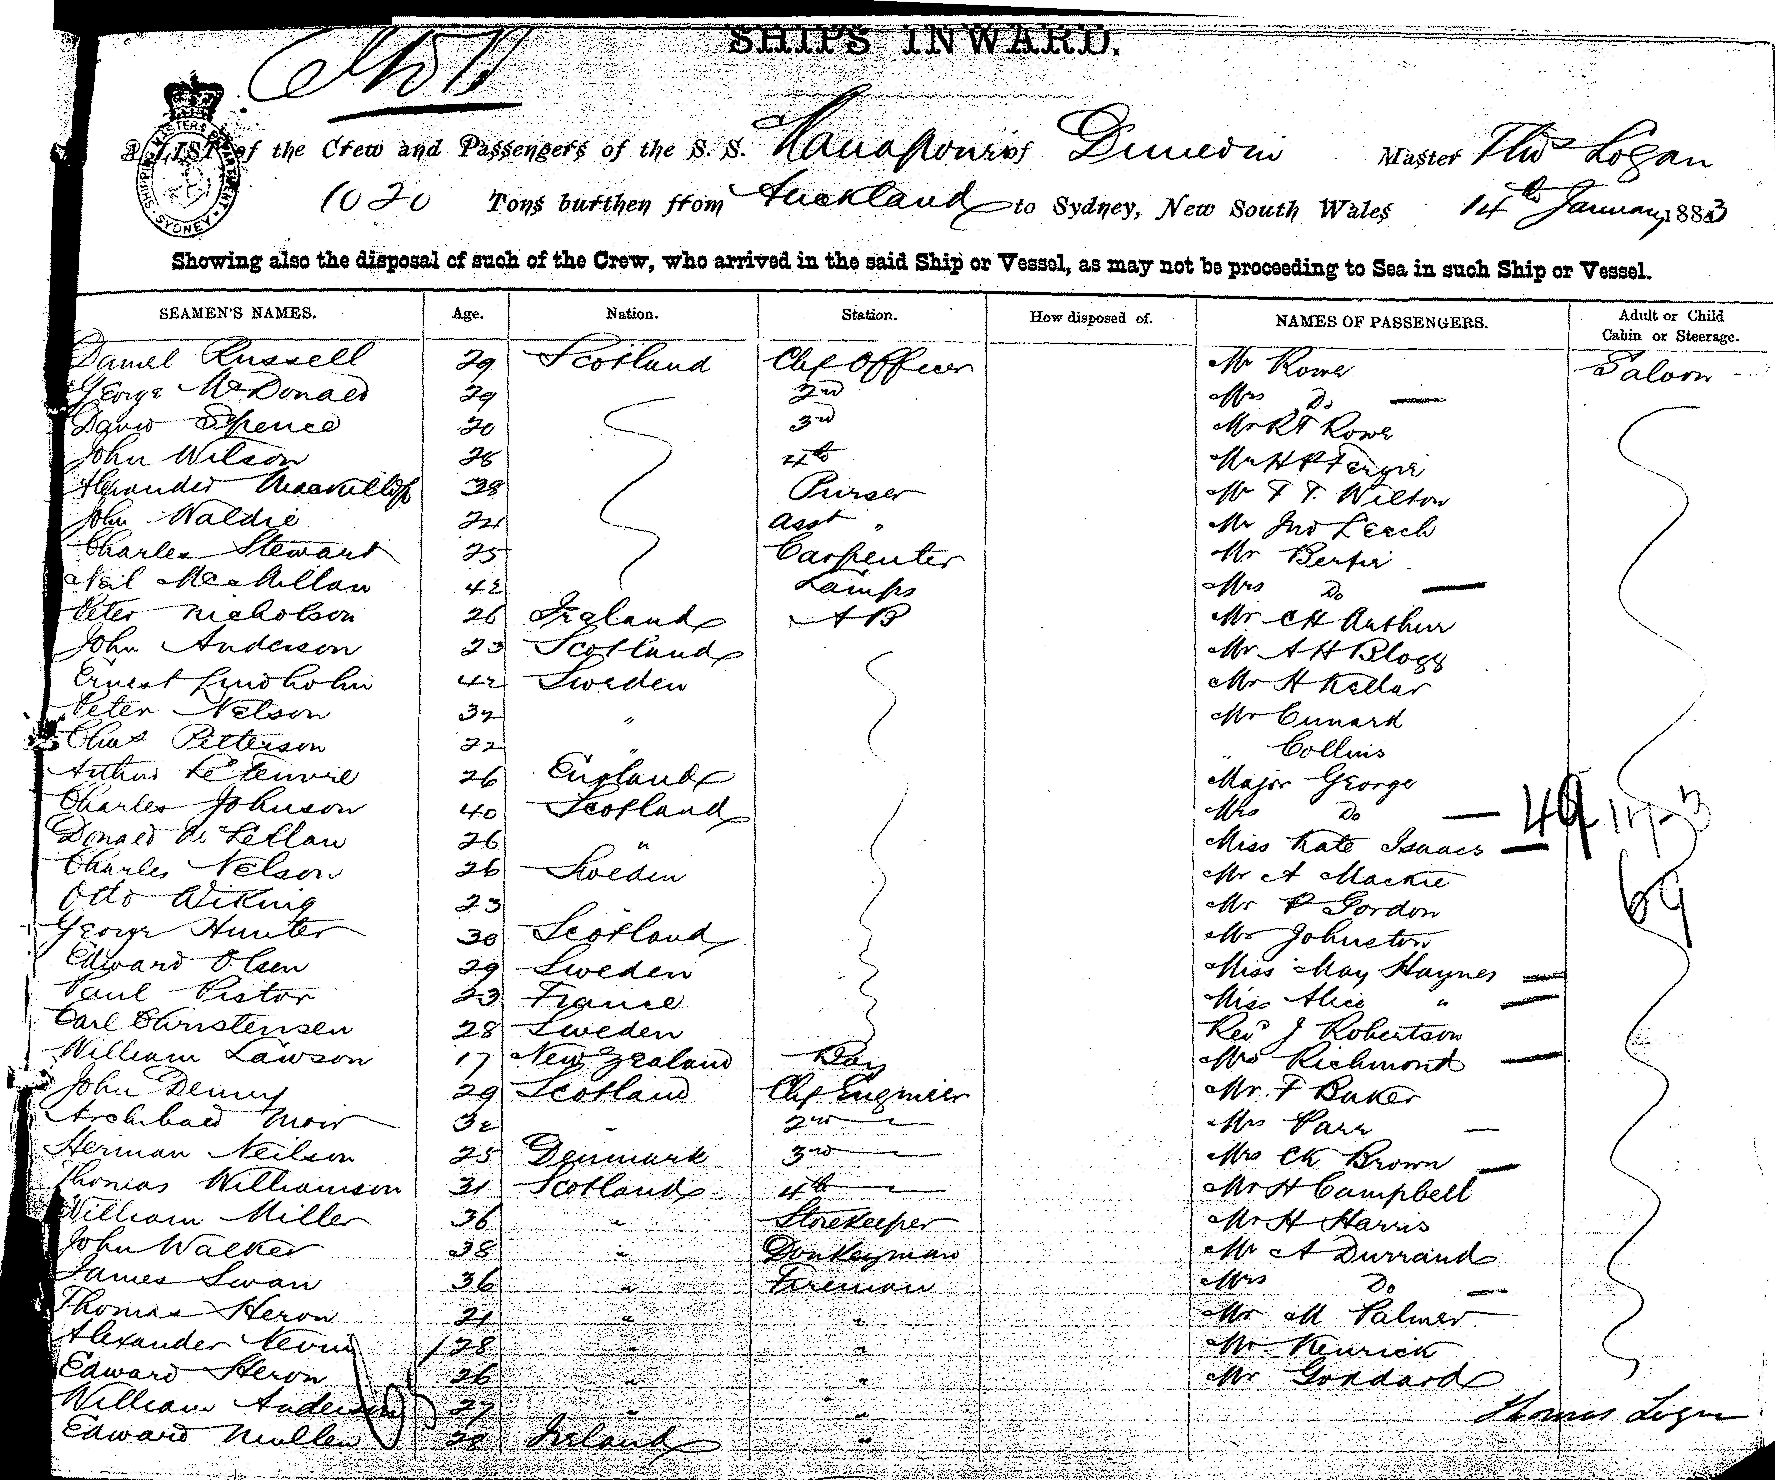 SHIPS INWARD.
A LIST of the Crew and Passengers of the S. S. Manapouri of Dunedin Master Thos Logan
1020 Tons burthen from Auckland to Sydney, New South Wales 14th January 1883
Showing also the disposal of such of the Crew, who arrived in the said Ship or Vessel, as may not be proceeding to Sea in such Ship or Vessel.
SEAMEN'S NAMES. Age. Nation. Station. How disposed of. NAMES OF PASSENGERS. Adult or Child Cabin or Steerage.
Daniel Russell 29 Scotland Chf Officer Mr Rowe Saloon
George McDonald 29 2nd Mrs Do
David Spence 20 3rd Mr R T Rowe
John Wilson 28 4th Mr H P
Alexander 38 Purser Mr T T. Wilton
John Waldie 24 Asst " Mr Jno Leech
Charles Stewart 25 Carpenter Mr
Neil McMillan 42 Lamps Mrs Do
Peter Nicholson 26 Ireland A B Mr C H Arthur
John Anderson 23 Scotland Mr A H Blogg
Ernest Lindholm 42 Sweden Mr H Kellar
Peter Nelson 32 " Mr Cunard
Chas Petterson 22 " " Collins
Arthur 26 England Major George
Charles Johnson 40 Scotland Mrs Do 49
Donald McLellan 26 " Miss Kate Isaacs
Charles Nelson 26 Sweden Mr A Mackie
Otto Wiking 23 Mr P Gordon 69
George Hunter 30 Scotland Mr Johnston
Edward Olsen 29 Sweden Miss May Haynes
Paul Pistor 23 France Miss Alice "
Carl Christensen 28 Sweden Revd J Robertson
William Lawson 17 New Zealand Boy Mrs Richmond
John Denny 29 Scotland Chf Engineer Mr. F Baker
Archibald Moir 32 " 2nd Mrs Parr
Herman Neilson 25 Denmark 3rd Mrs C K Brown
Thomas Williamson 31 Scotland 4th Mr H Campbell
William Miller 36 " Storekeeper Mr H Harris
John Walker 38 " Donkeyman Mr A Durrand
James Swan 36 " Fireman Mrs Do
Thomas Heron 21 " " Mr M Palmer
Alexander Nevin 28 " " Mr Kenrick
Edward Heron 26 " " Mr Goddard
William Anderson 27 " " Thomas Logan
Edward Mullen 20 Ireland "